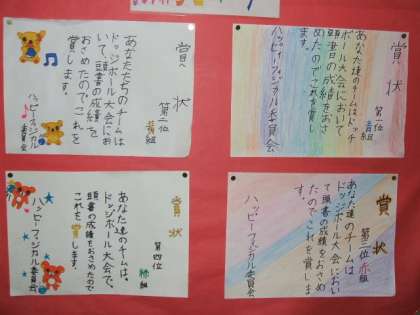 賞状
第一位
青組
あなた達のチームはドッチ
ボール大会において
頭書の成績をおさ
めたのでこれを賞し
ます。
ハッピーフィジカル委員会
賞状
第三位
黄組
あなたたちのチームは
ドッジボール大会にお
いて、頭書の成績を
おさめたのでこれを
賞します。
ハッピーフィジカル
委員会
賞状
第二位赤組
あなた達のチームは
ドッジボール大会におい
て頭書の成績をおさめ
たのでこれを賞しま
す。
ハッピーフィジカル委員会
賞状
第四位
緑組
あなた達のチームは、
ドッジボール大会で、
頭書の成績をおさめたので
これを賞します。
ハッピーフィジカル委員会